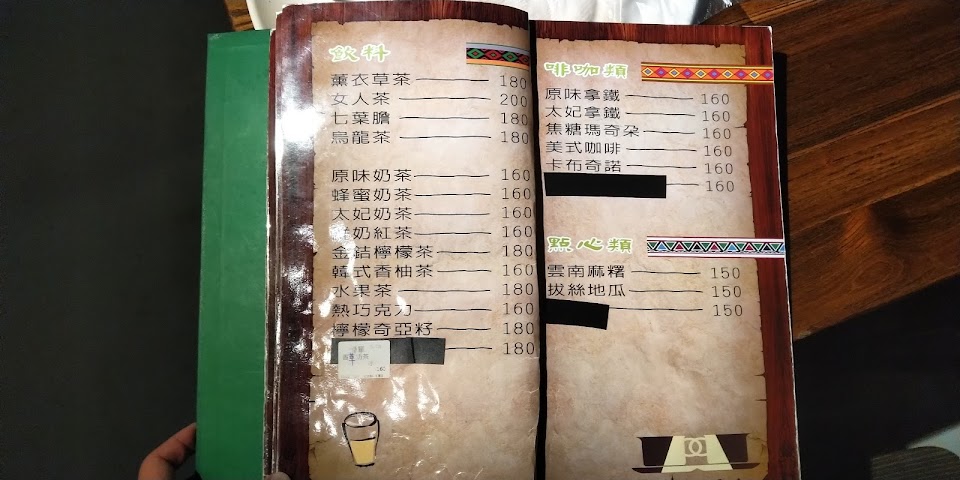 飲料
薰衣草茶 180
女人茶 200
七葉膽 180
烏龍茶 180
原味奶茶 160
蜂蜜奶茶 160
太妃奶茶 160
奶紅茶 160
金桔檸檬茶 180
韓式香柚茶 160
水果茶 180
熱巧克力 160
檸檬奇亞籽 180
180
啡咖類
原味拿鐵 160
太妃拿鐵 160
焦糖瑪奇朵 160
美式咖啡 160
卡布奇諾 160
160
點心類
雲南麻糬 150
拔絲地瓜 150
150